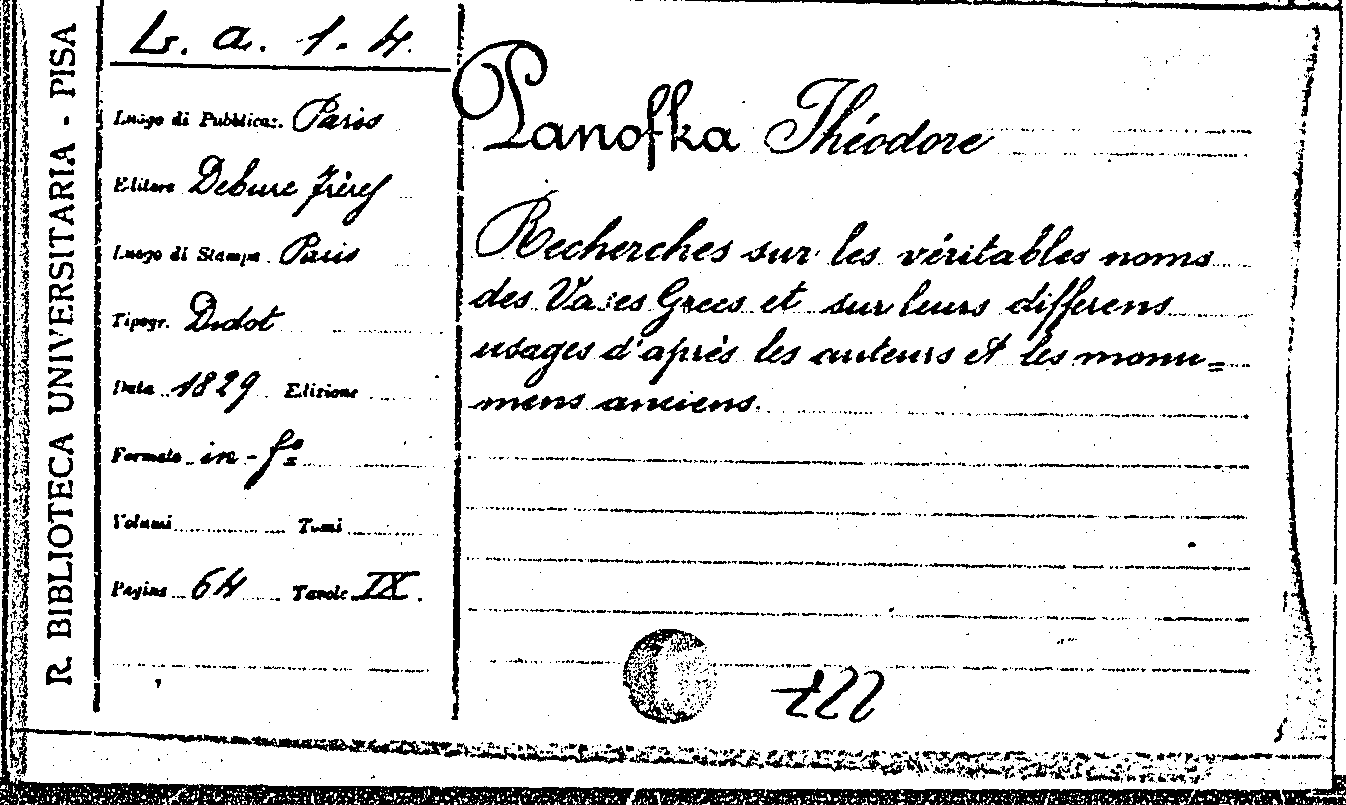 R. BIBLIOTECA UNIVERSITARIA - PISA
L. a. 1. 4.
Luogo di Pubblicaz. Paris
Editore Debure frères
Luogo di Stampa Paris
Tipogr. Didot
Data 1829 Edizione
Formato in-fº
Volumi Tomi
Pagine 64 Tavole IX.
Panofka Théodore
Recherches sur les véritables noms
des Vases Grecs et sur leurs differens
usages d'après les auteurs et les monu=
mens anciens.